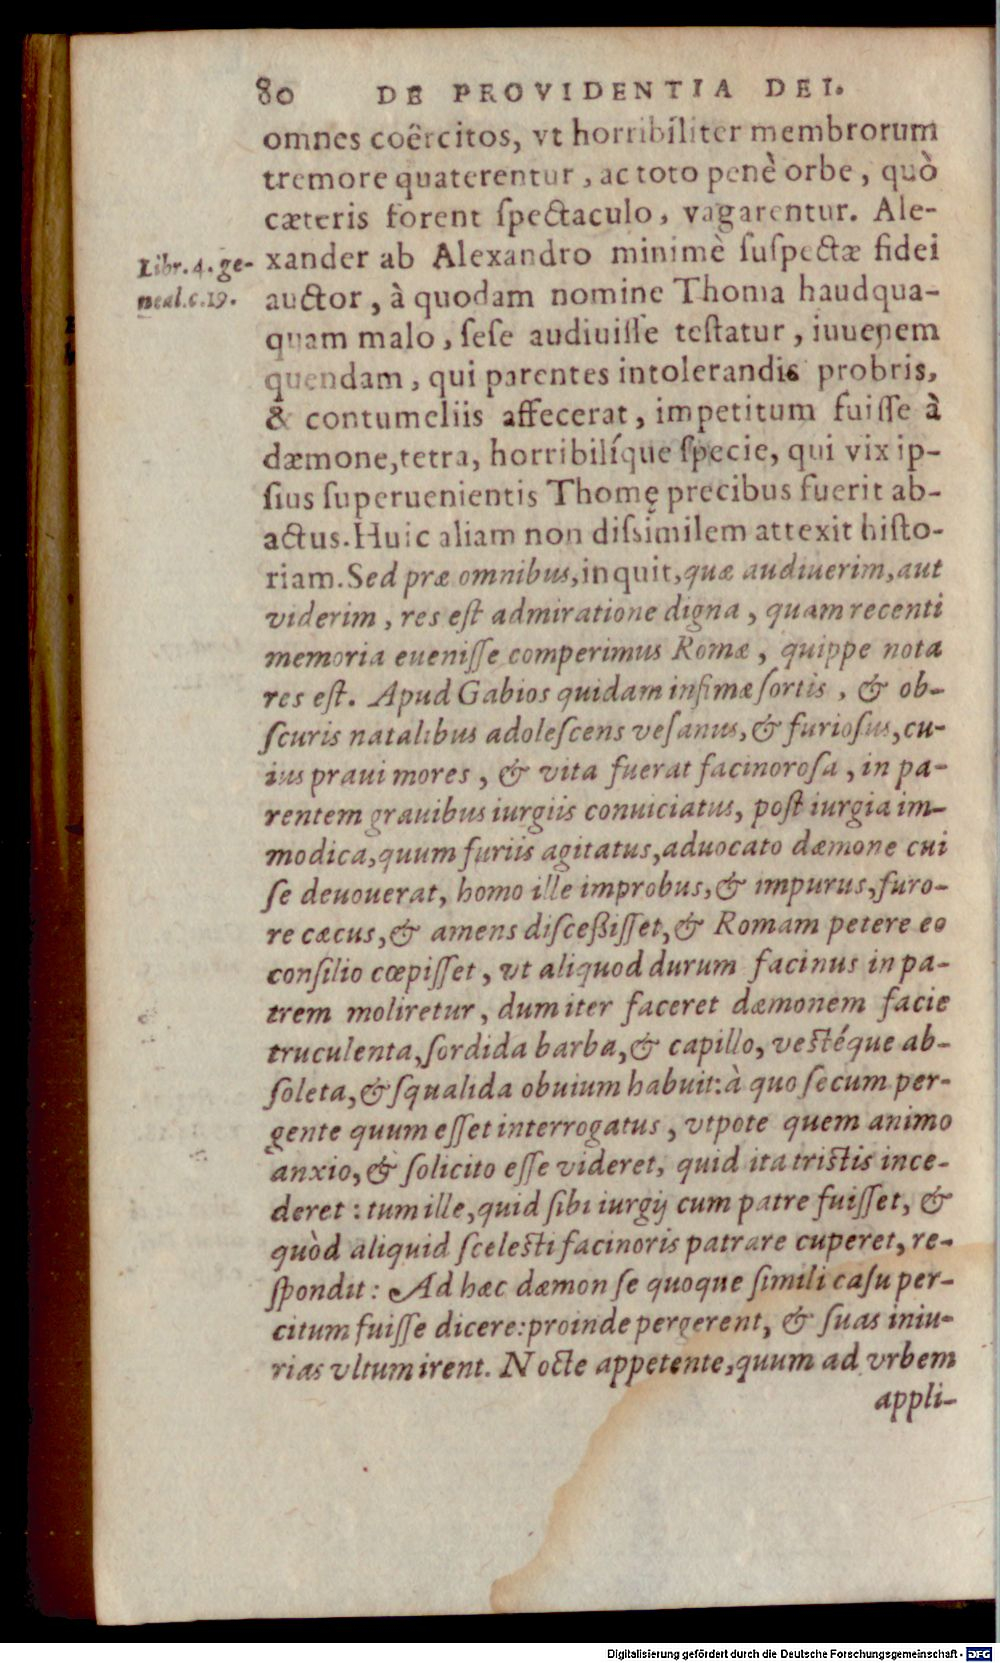 80 DE PROVIDENTIA DEI.
omnes coêrcitos, vt horribíliter membrorum
tremore quaterentur, ac toto penè orbe, quò
cæteris forent ſpectaculo, vagarentur. Ale-
xander ab Alexandro minimè ſuſpectæ fidei
Libr. 4. ge-
neal. c. 19.
auctor, à quodam nomine Thoma haudqua-
quam malo, ſeſe audiuiſſe teſtatur, iuuenem
quendam, qui parentes intolerandis probris,
& contumeliis affecerat, impetitum fuiſſe à
dæmone, tetra, horribilíque ſpecie, qui vix ip-
ſius ſuperuenientis Thomę precibus fuerit ab-
actus. Huic aliam non diſsimilem attexit hiſto-
riam. Sed præ omnibus, inquit, quæ audiuerim, aut
viderim, res eſt admiratione digna, quam recenti
memoria eueniſſe comperimus Romæ, quippe nota
res eſt. Apud Gabios quidam infimæ ſortis, & ob-
ſcuris natalibus adoleſcens veſanus, & furioſus, cu-
ius praui mores, & vita fuerat facinoroſa, in pa-
rentem grauibus iurgiis conuiciatus, poſt iurgia im-
modica, quum furiis agitatus, aduocato dæmone cui
ſe deuouerat, homo ille improbus, & impurus, furo-
re cæcus, & amens diſceßiſſet, & Romam petere eo
conſilio cœpiſſet, vt aliquod durum facinus in pa-
trem moliretur, dum iter faceret dæmonem facie
truculenta, ſordida barba, & capillo, veſtéque ab-
ſoleta, & ſqualida obuium habuit: à quo ſecum per-
gente quum eſſet interrogatus, vtpote quem animo
anxio, & ſolicito eſſe videret, quid ita triſtis ince-
deret: tum ille, quid ſibi iurgij cum patre fuiſſet, &
quòd aliquid ſceleſti facinoris patrare cuperet, re-
ſpondit: Ad hæc dæmon ſe quoque ſimili caſu per-
citum fuiſſe dicere: proinde pergerent, & ſuas iniu-
rias vltum irent. Nocte appetente, quum ad vrbem
appli-
Digitalisierung gefördert durch die Deutsche Forschungsgemeinschaft - DFG